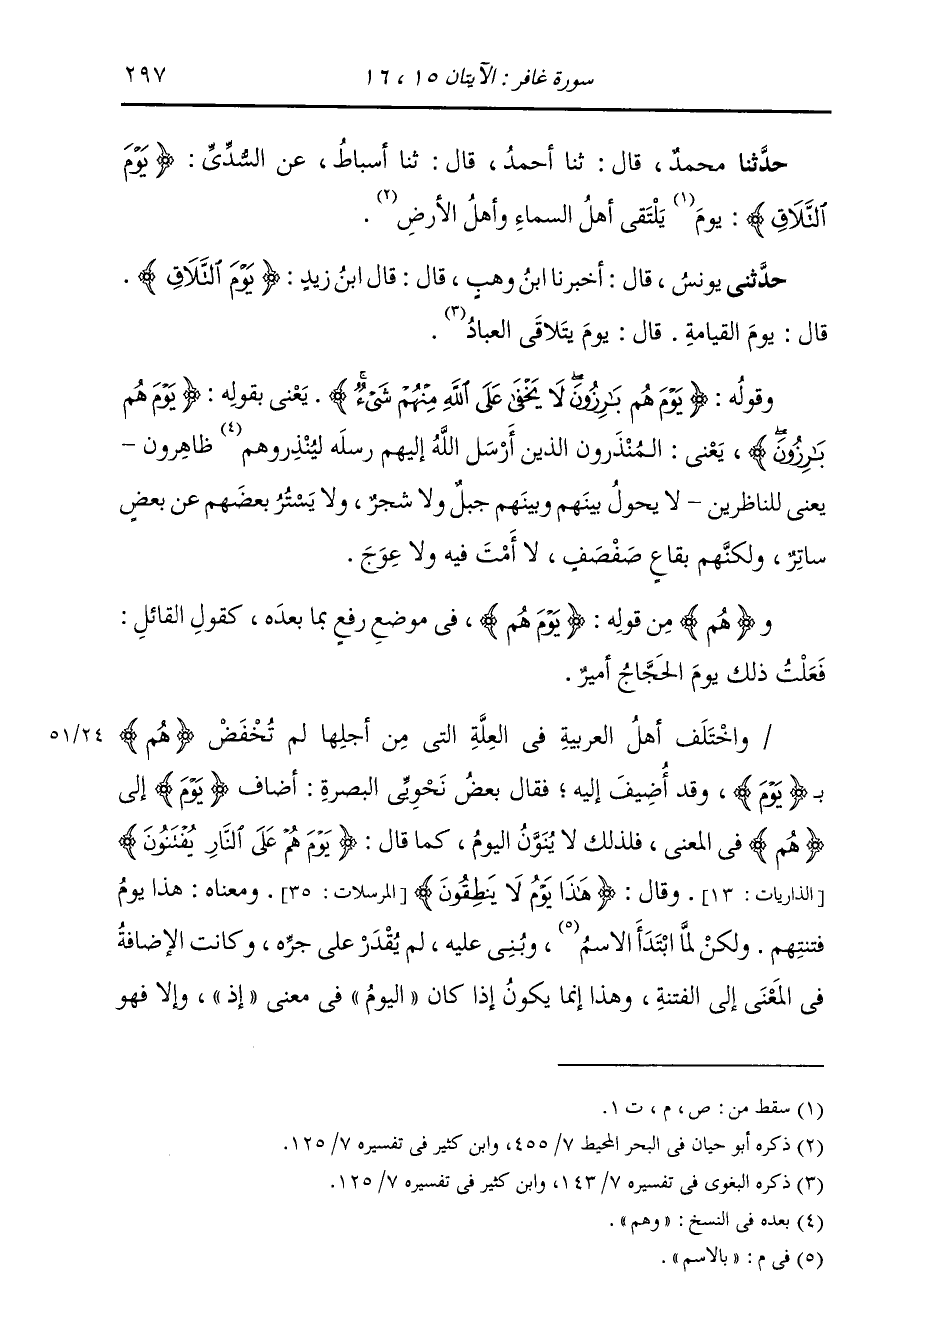 سورة غافر : الآيتان ١٥ ، ١٦
٢٩٧
حدَّثنا محمدٌ ، قال : ثنا أحمدُ ، قال : ثنا أسباطُ ، عن السُّدِّىِّ : ﴿ يَوْمَ
ٱلنَّلَاقِ ﴾ : يومَ(١) يَلْتَقى أهلُ السماءِ وأهلُ الأرضِ(٢) .
حدَّثنى يونسُ ، قال : أخبرنا ابنُ وهبٍ ، قال : قال ابنُ زيدٍ : ﴿ يَوْمَ ٱلنَّلَاقِ ﴾ .
قال : يومَ القيامةِ . قال : يومَ يتَلاقَى العبادُ(٣) .
وقولُه : ﴿ يَوْمَ هُم بَـٰرِزُونَۖ لَا يَخْفَىٰ عَلَى ٱللَّهِ مِنْهُمْ شَىْءٌۚ ﴾ . يَعْنى بقولِه : ﴿ يَوْمَ هُم
بَـٰرِزُونَۖ ﴾ ، يَعْنى : المُنْذَرون الذين أَرْسَل اللَّهُ إليهم رسلَه ليُنْذِروهم(٤) ظاهِرون –
يعنى للناظرين – لا يحولُ بينَهم وبينَهم جبلٌ ولا شجرٌ ، ولا يَسْتُرُ بعضَهم عن بعضٍ
ساتِرٌ ، ولكنَّهم بقاعٍ صَفْصَفٍ ، لا أَمْتَ فيه ولا عِوَجَ .
و ﴿ هُم ﴾ مِن قولِه : ﴿ يَوْمَ هُم ﴾ ، فى موضعِ رفعٍ بما بعدَه ، كقولِ القائلِ :
فَعَلْتُ ذلك يومَ الحَجَّاجُ أميرٌ .
/ واخْتَلَف أهلُ العربيةِ فى العِلَّةِ التى مِن أجلِها لم تُخْفَضْ ﴿ هُم ﴾ ٥١/٢٤
بـ ﴿ يَوْمَ ﴾ ، وقد أُضِيفَ إليه ؛ فقال بعضُ نَحْويِّى البصرةِ : أضاف ﴿ يَوْمَ ﴾ إلى
﴿ هُم ﴾ فى المعنى ، فلذلك لا يُنَوَّنُ اليومُ ، كما قال : ﴿ يَوْمَ هُمْ عَلَى ٱلنَّارِ يُفْتَنُونَ ﴾
[الذاريات : ١٣] . وقال : ﴿ هَـٰذَا يَوْمُ لَا يَنطِقُونَ ﴾ [المرسلات : ٣٥] . ومعناه : هذا يومُ
فتنتِهم . ولكنْ لمَّا ابْتَدَأَ الاسمُ(٥) ، وبُنِى عليه ، لم يُقْدَرْ على جرِّه ، وكانت الإضافةُ
فى المَعْنَى إلى الفتنةِ ، وهذا إنما يكونُ إذا كان « اليومُ » فى معنى « إذ » ، وإلا فهو
(١) سقط من : ص ، م ، ت ١.
(٢) ذكره أبو حيان فى البحر المحيط ٧/ ٤٥٥، وابن كثير فى تفسيره ٧/ ١٢٥.
(٣) ذكره البغوى فى تفسيره ٧/ ١٤٣، وابن كثير فى تفسيره ٧/ ١٢٥.
(٤) بعده فى النسخ : « وهم » .
(٥) فى م : « بالاسم » .